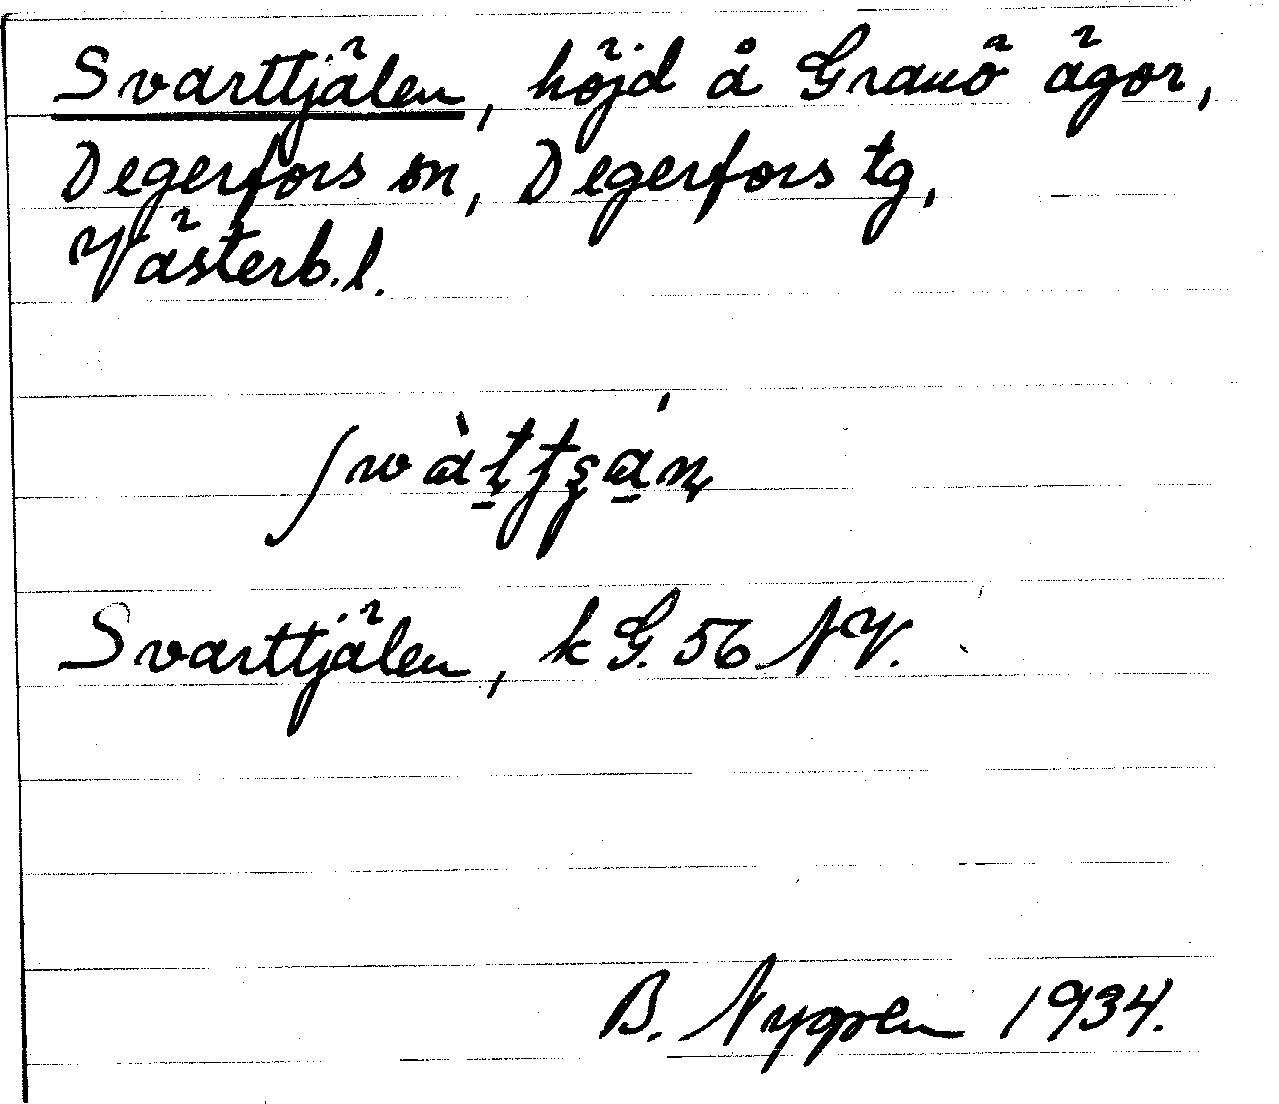 Svarttjälen, höjd å Granö ägor,
Degerfors sn, Degerfors tg,
Västerb.l.
Svarttjälen, k G. 56 NV.
B. Nygren 1934.